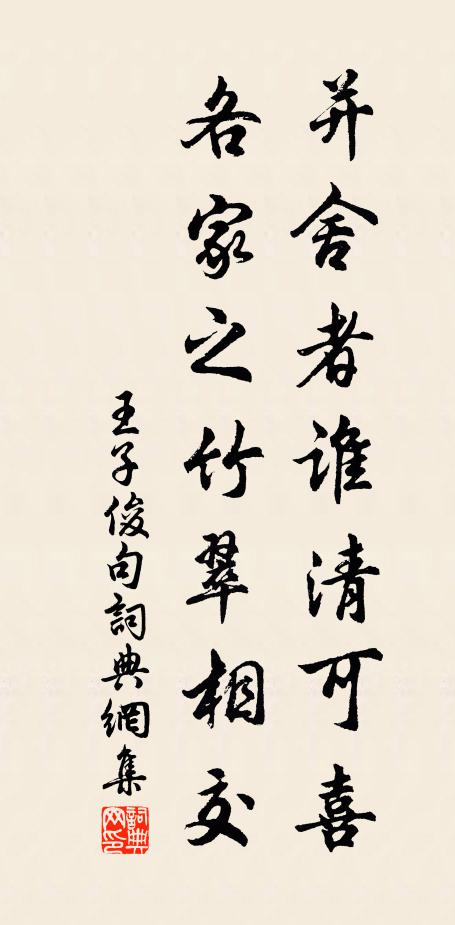 并舍者谁清可喜
各家之竹翠相交
王子俊句詞典網集
詞典网印